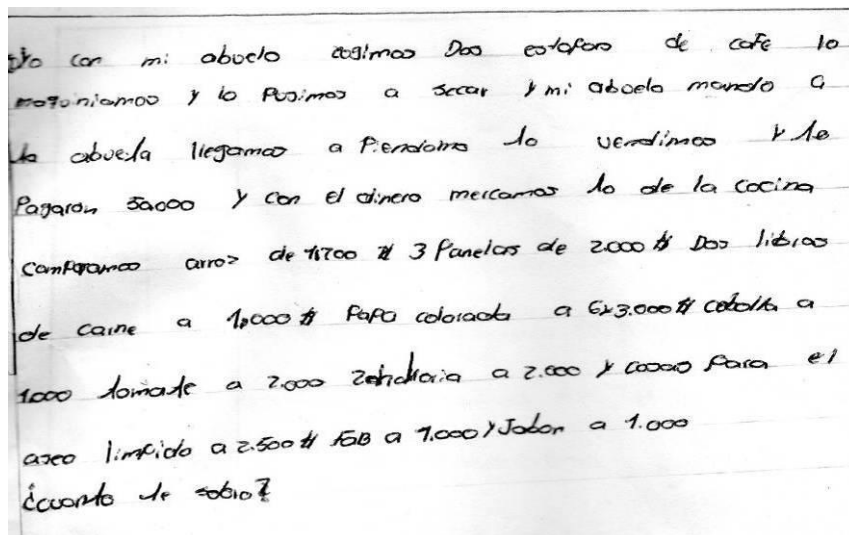 Yo con mi abuelo cogimos Dos estoforo de cafe lo
y lo Pusimos a secar y mi abuelo mando a
la abuela llegamos a Piendamo lo vendimos y le
Pagaron 50000 y con el dinero mercamos lo de la cocina
compramos arroz de 1.700 # 3 Panelas de 2.000 # Dos libras
de carne a # PaPa colorada a 6x3.000 # cebolla a
1.000 tomate a 2.000 Zanahoria a 2.000 y cosas Para el
aseo limpido a 2.500 # FaB a 1.000 y Jabon a 1.000
¿cuanto le sobro?